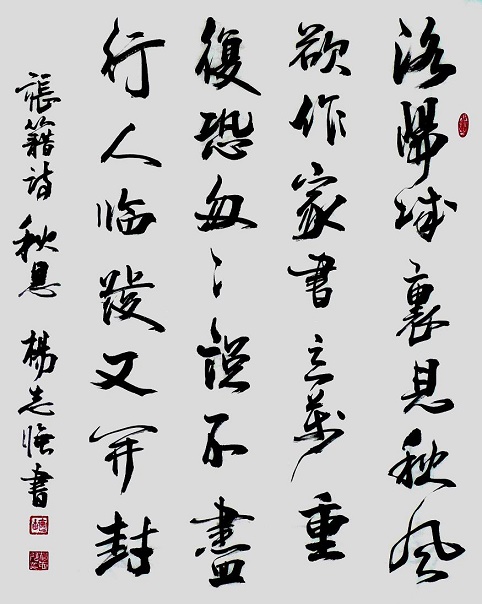 洛陽城裏見秋風
欲作家書意萬重
復恐匆〻説不盡
行人临發又開封
張籍詩 秋思 楊志
書